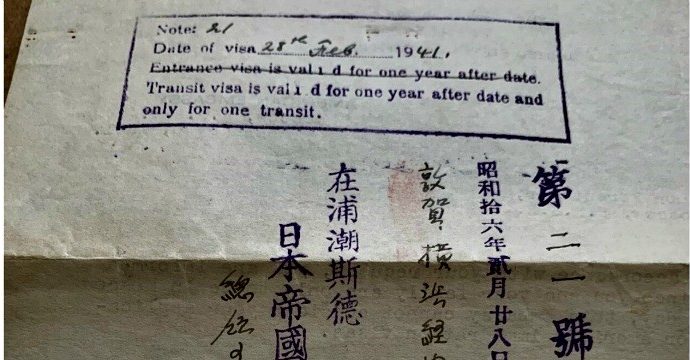 Note: 21
Date of visa 28th Feb. 1941.
Entrance visa is valid for one year after date.
Transit visa is valid for one year after date and
only for one transit.
第二一號
昭和拾六年貳月廿八日
敦賀橫浜経由
在浦潮斯德
日本帝國
總領事